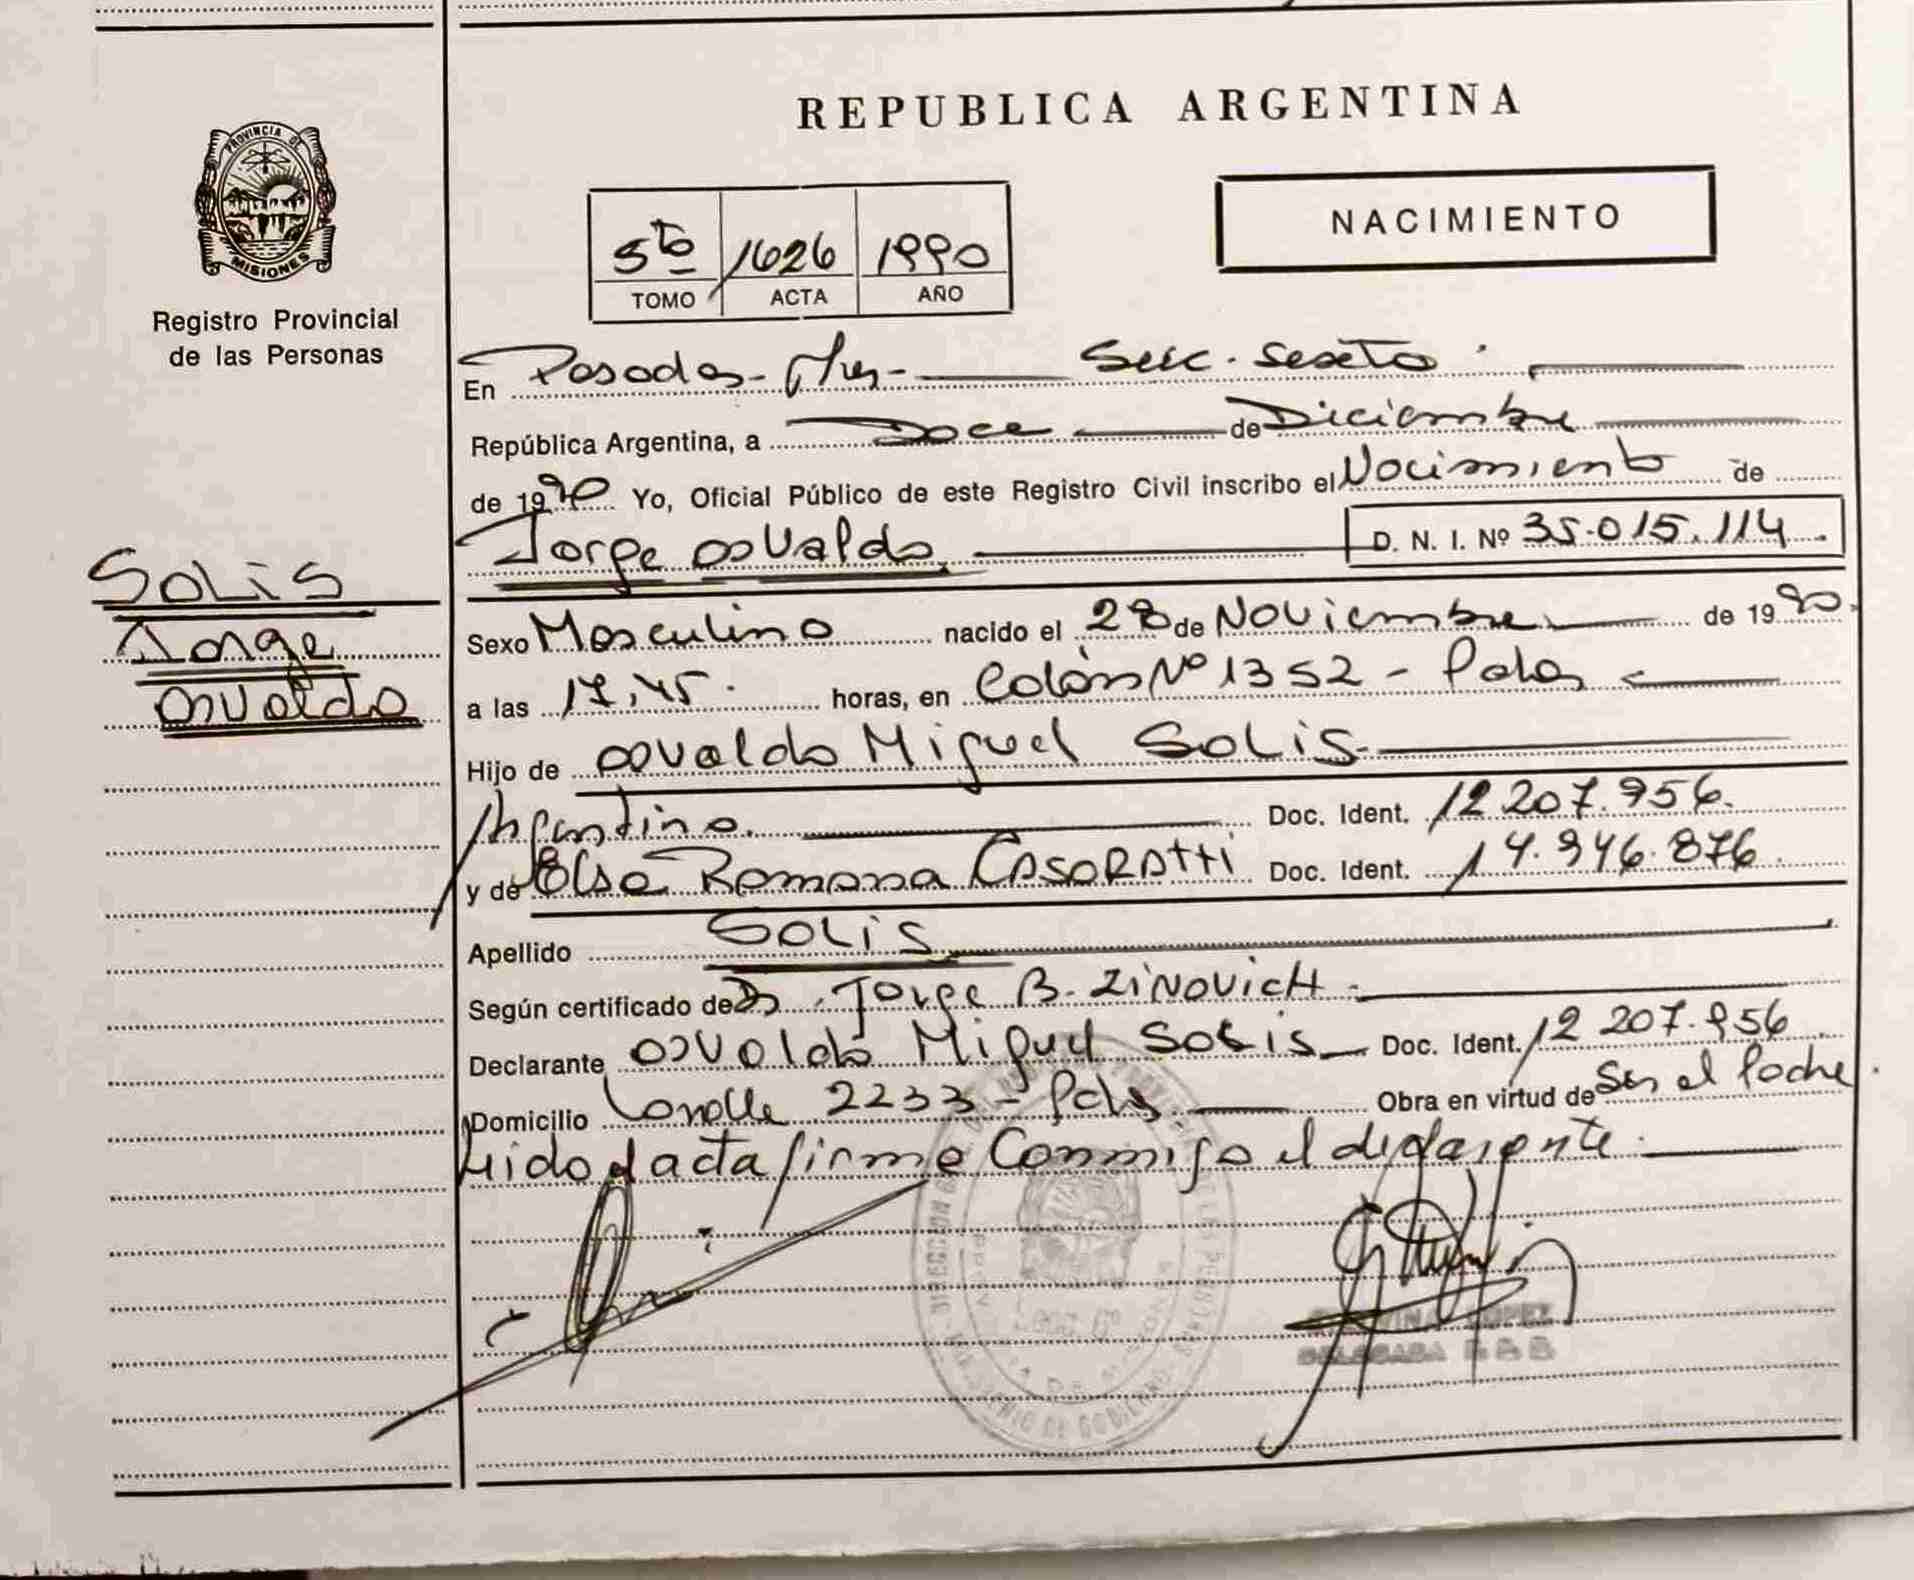 REPUBLICA ARGENTINA
PROVINCIA DE
MISIONES
Registro Provincial
de las Personas
NACIMIENTO
5to 1626 1990
TOMO ACTA AÑO
En Posadas - Mnes - Secc. sexta
República Argentina, a Doce de Diciembre
de 1990 Yo, Oficial Público de este Registro Civil inscribo el Nacimiento de
Jorge osvaldo D. N. I. Nº 35.015.114
Solis
Jorge
osvaldo
Sexo Masculino nacido el 28 de Noviembre de 1990.
a las 17,45. horas, en Colón Nº 1352 - Pdas
Hijo de osvaldo Miguel Solis
Argentino. Doc. Ident. 12 207.956.
y de Elsa Ramona CASORATTI Doc. Ident. 14.946.876.
Apellido Solis
Según certificado de Dr. Jorge B. Zinovich
Declarante osvaldo Miguel Solis Doc. Ident. 12 207.956
Domicilio 2233 - Pdas Obra en virtud de Ser el Padre.
Leido el acta firma Conmigo el declarante.
LOPEZ
DELEGADA